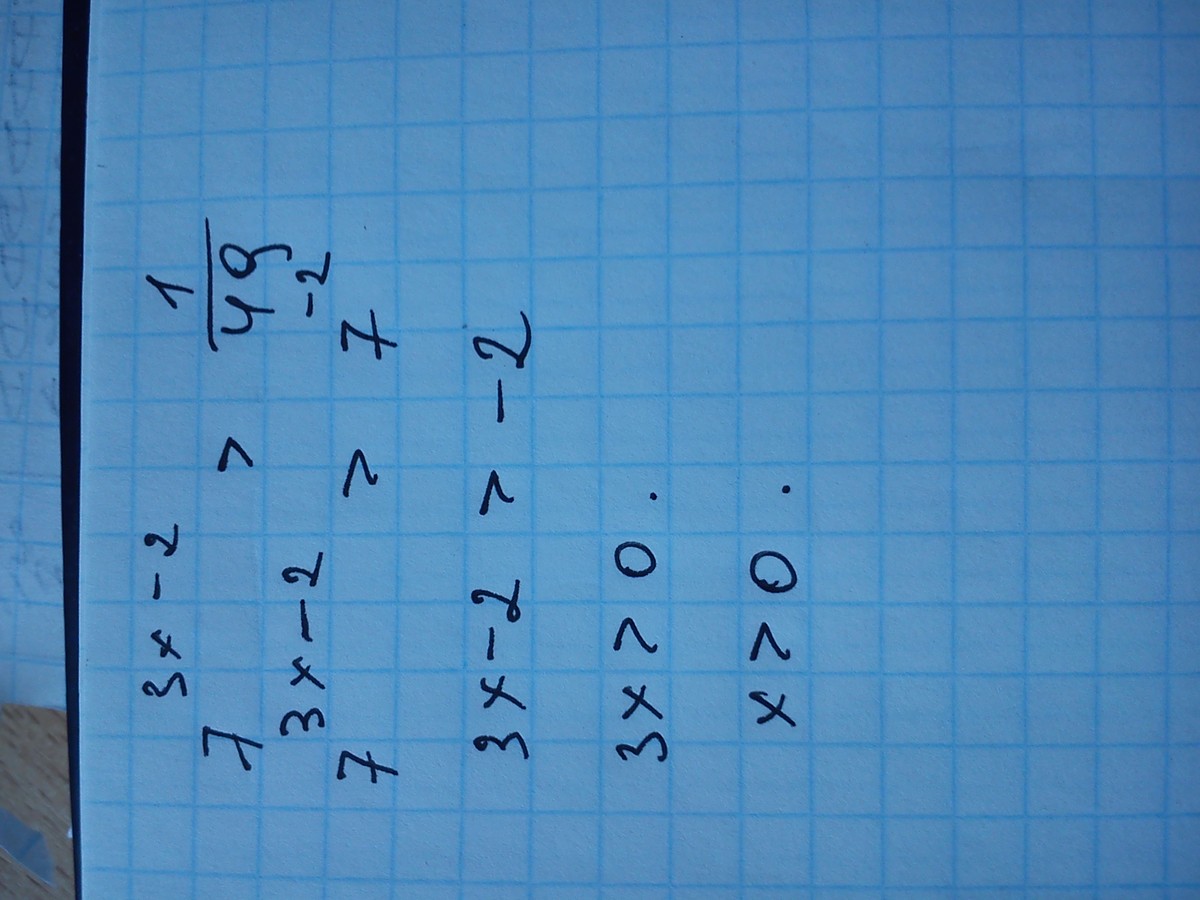 7^(3x-2) > 1/49
7^(3x-2) > 7^(-2)
3x-2 > -2
3x > 0.
x > 0.